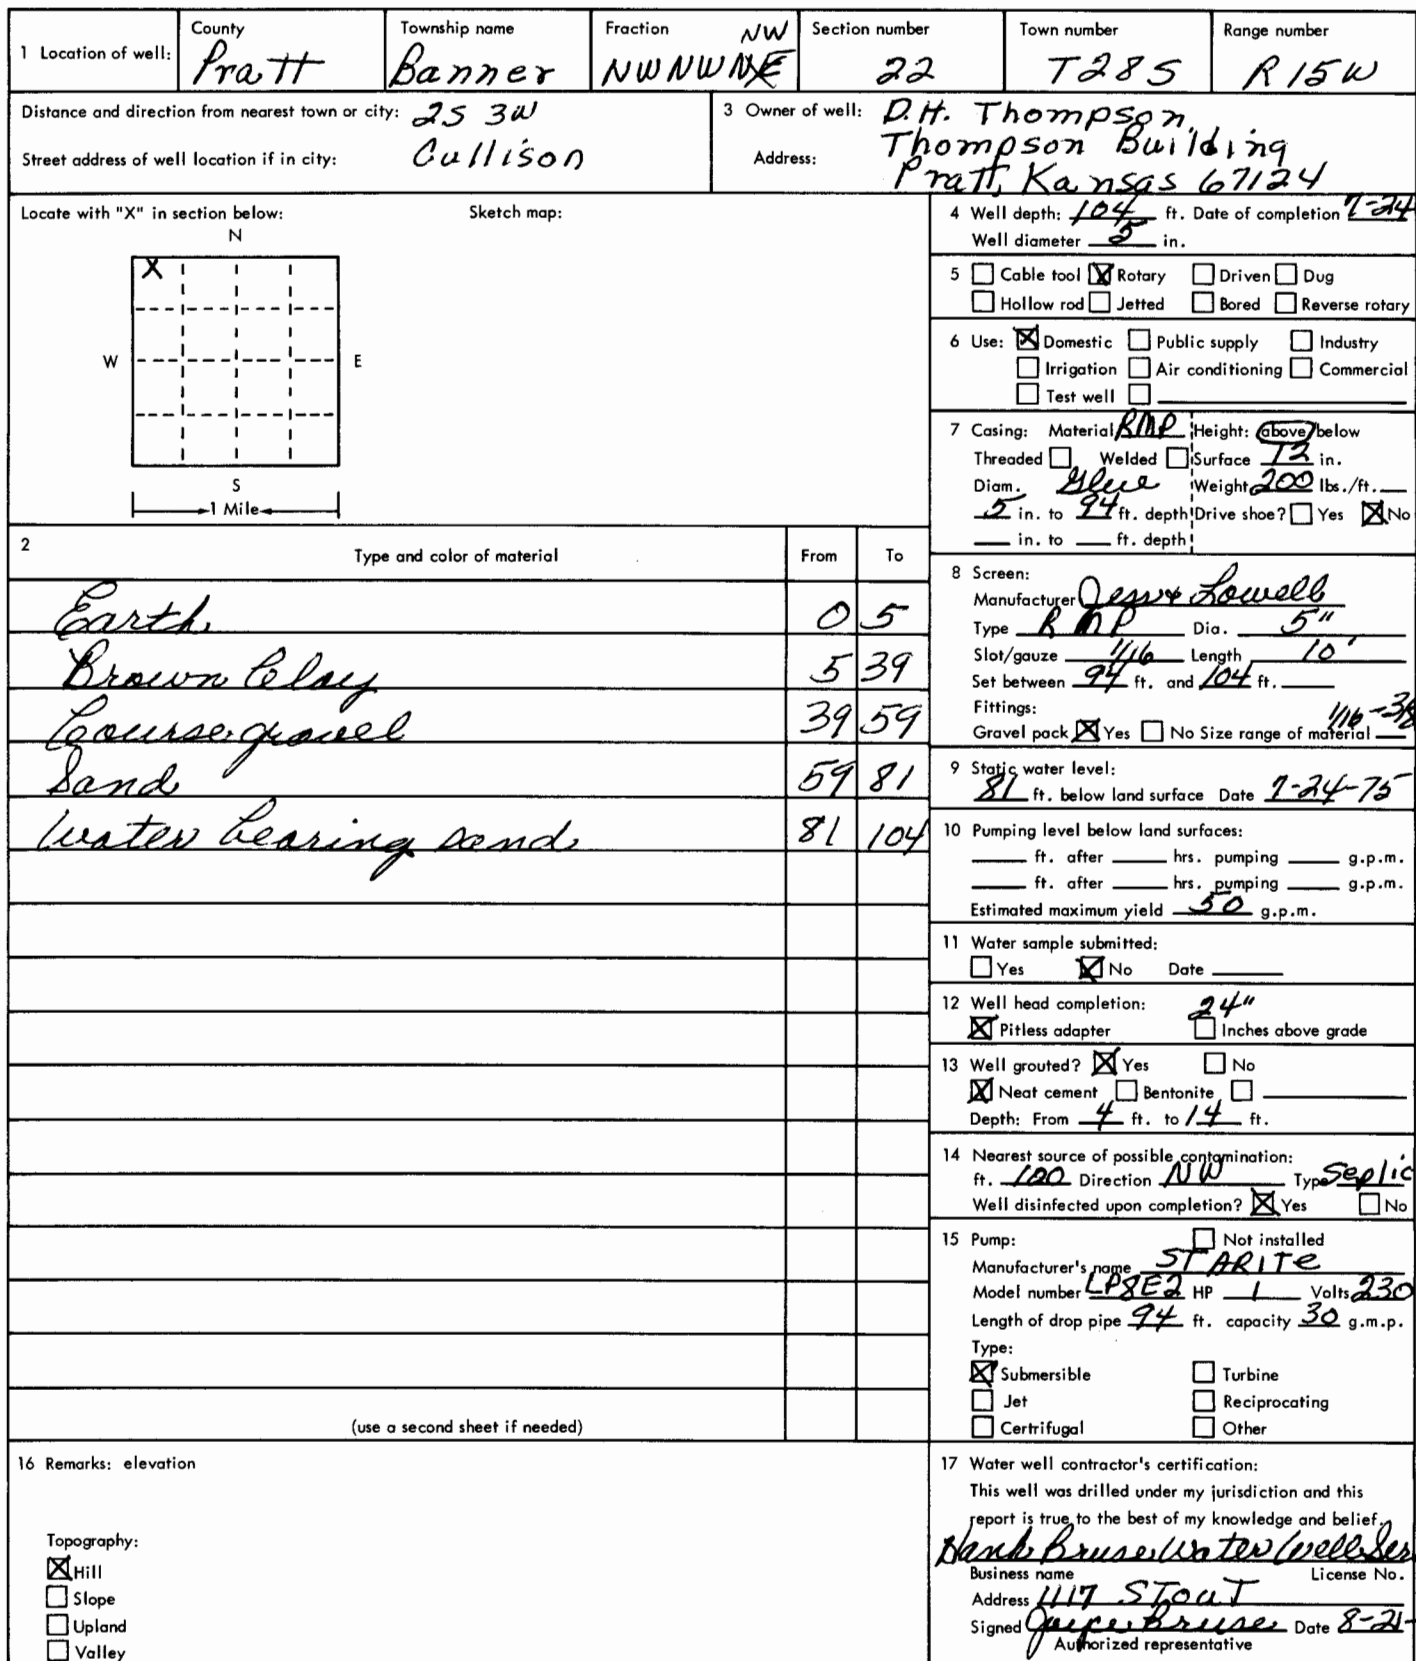 1 Location of well: County Pratt Township name Banner Fraction NW NWNWNE Section number 22 Town number T28S Range number R15W
Distance and direction from nearest town or city: 2S 3W
Street address of well location if in city: Cullison
3 Owner of well: D.H. Thompson
Address: Thompson Building
Pratt, Kansas 67124
Locate with "X" in section below: Sketch map:
N
X
W E
S
1 Mile
4 Well depth: 104 ft. Date of completion 7-24
Well diameter 5 in.
5 Cable tool X Rotary Driven Dug
Hollow rod Jetted Bored Reverse rotary
6 Use: X Domestic Public supply Industry
Irrigation Air conditioning Commercial
Test well
7 Casing: Material RMP Height: above/below
Threaded Welded Surface 12 in.
Diam. Glue Weight 200 lbs./ft.
5 in. to 94 ft. depth Drive shoe? Yes X No
in. to ft. depth
2 Type and color of material From To
Earth 0 5
Brown Clay 5 39
Course gravel 39 59
Sand 59 81
Water bearing sand 81 104
(use a second sheet if needed)
8 Screen:
Manufacturer Lowell
Type RMP Dia. 5"
Slot/gauze 1/16 Length 10'
Set between 94 ft. and 104 ft.
Fittings: 1/16-3/8
Gravel pack X Yes No Size range of material
9 Static water level:
81 ft. below land surface Date 7-24-75
10 Pumping level below land surfaces:
ft. after hrs. pumping g.p.m.
ft. after hrs. pumping g.p.m.
Estimated maximum yield 50 g.p.m.
11 Water sample submitted:
Yes X No Date
12 Well head completion: 24"
X Pitless adapter Inches above grade
13 Well grouted? X Yes No
X Neat cement Bentonite
Depth: From 4 ft. to 14 ft.
14 Nearest source of possible contamination:
ft. 100 Direction NW Type Septic
Well disinfected upon completion? X Yes No
15 Pump: Not installed
Manufacturer's name STARITE
Model number LP8E2 HP 1 Volts 230
Length of drop pipe 94 ft. capacity 30 g.m.p.
Type:
X Submersible Turbine
Jet Reciprocating
Certrifugal Other
16 Remarks: elevation
Topography:
X Hill
Slope
Upland
Valley
17 Water well contractor's certification:
This well was drilled under my jurisdiction and this
report is true to the best of my knowledge and belief.
Hank Bruse Water Well Ser
Business name License No.
Address 1117 STOUT
Signed Joyce Bruse Date 8-21-
Authorized representative